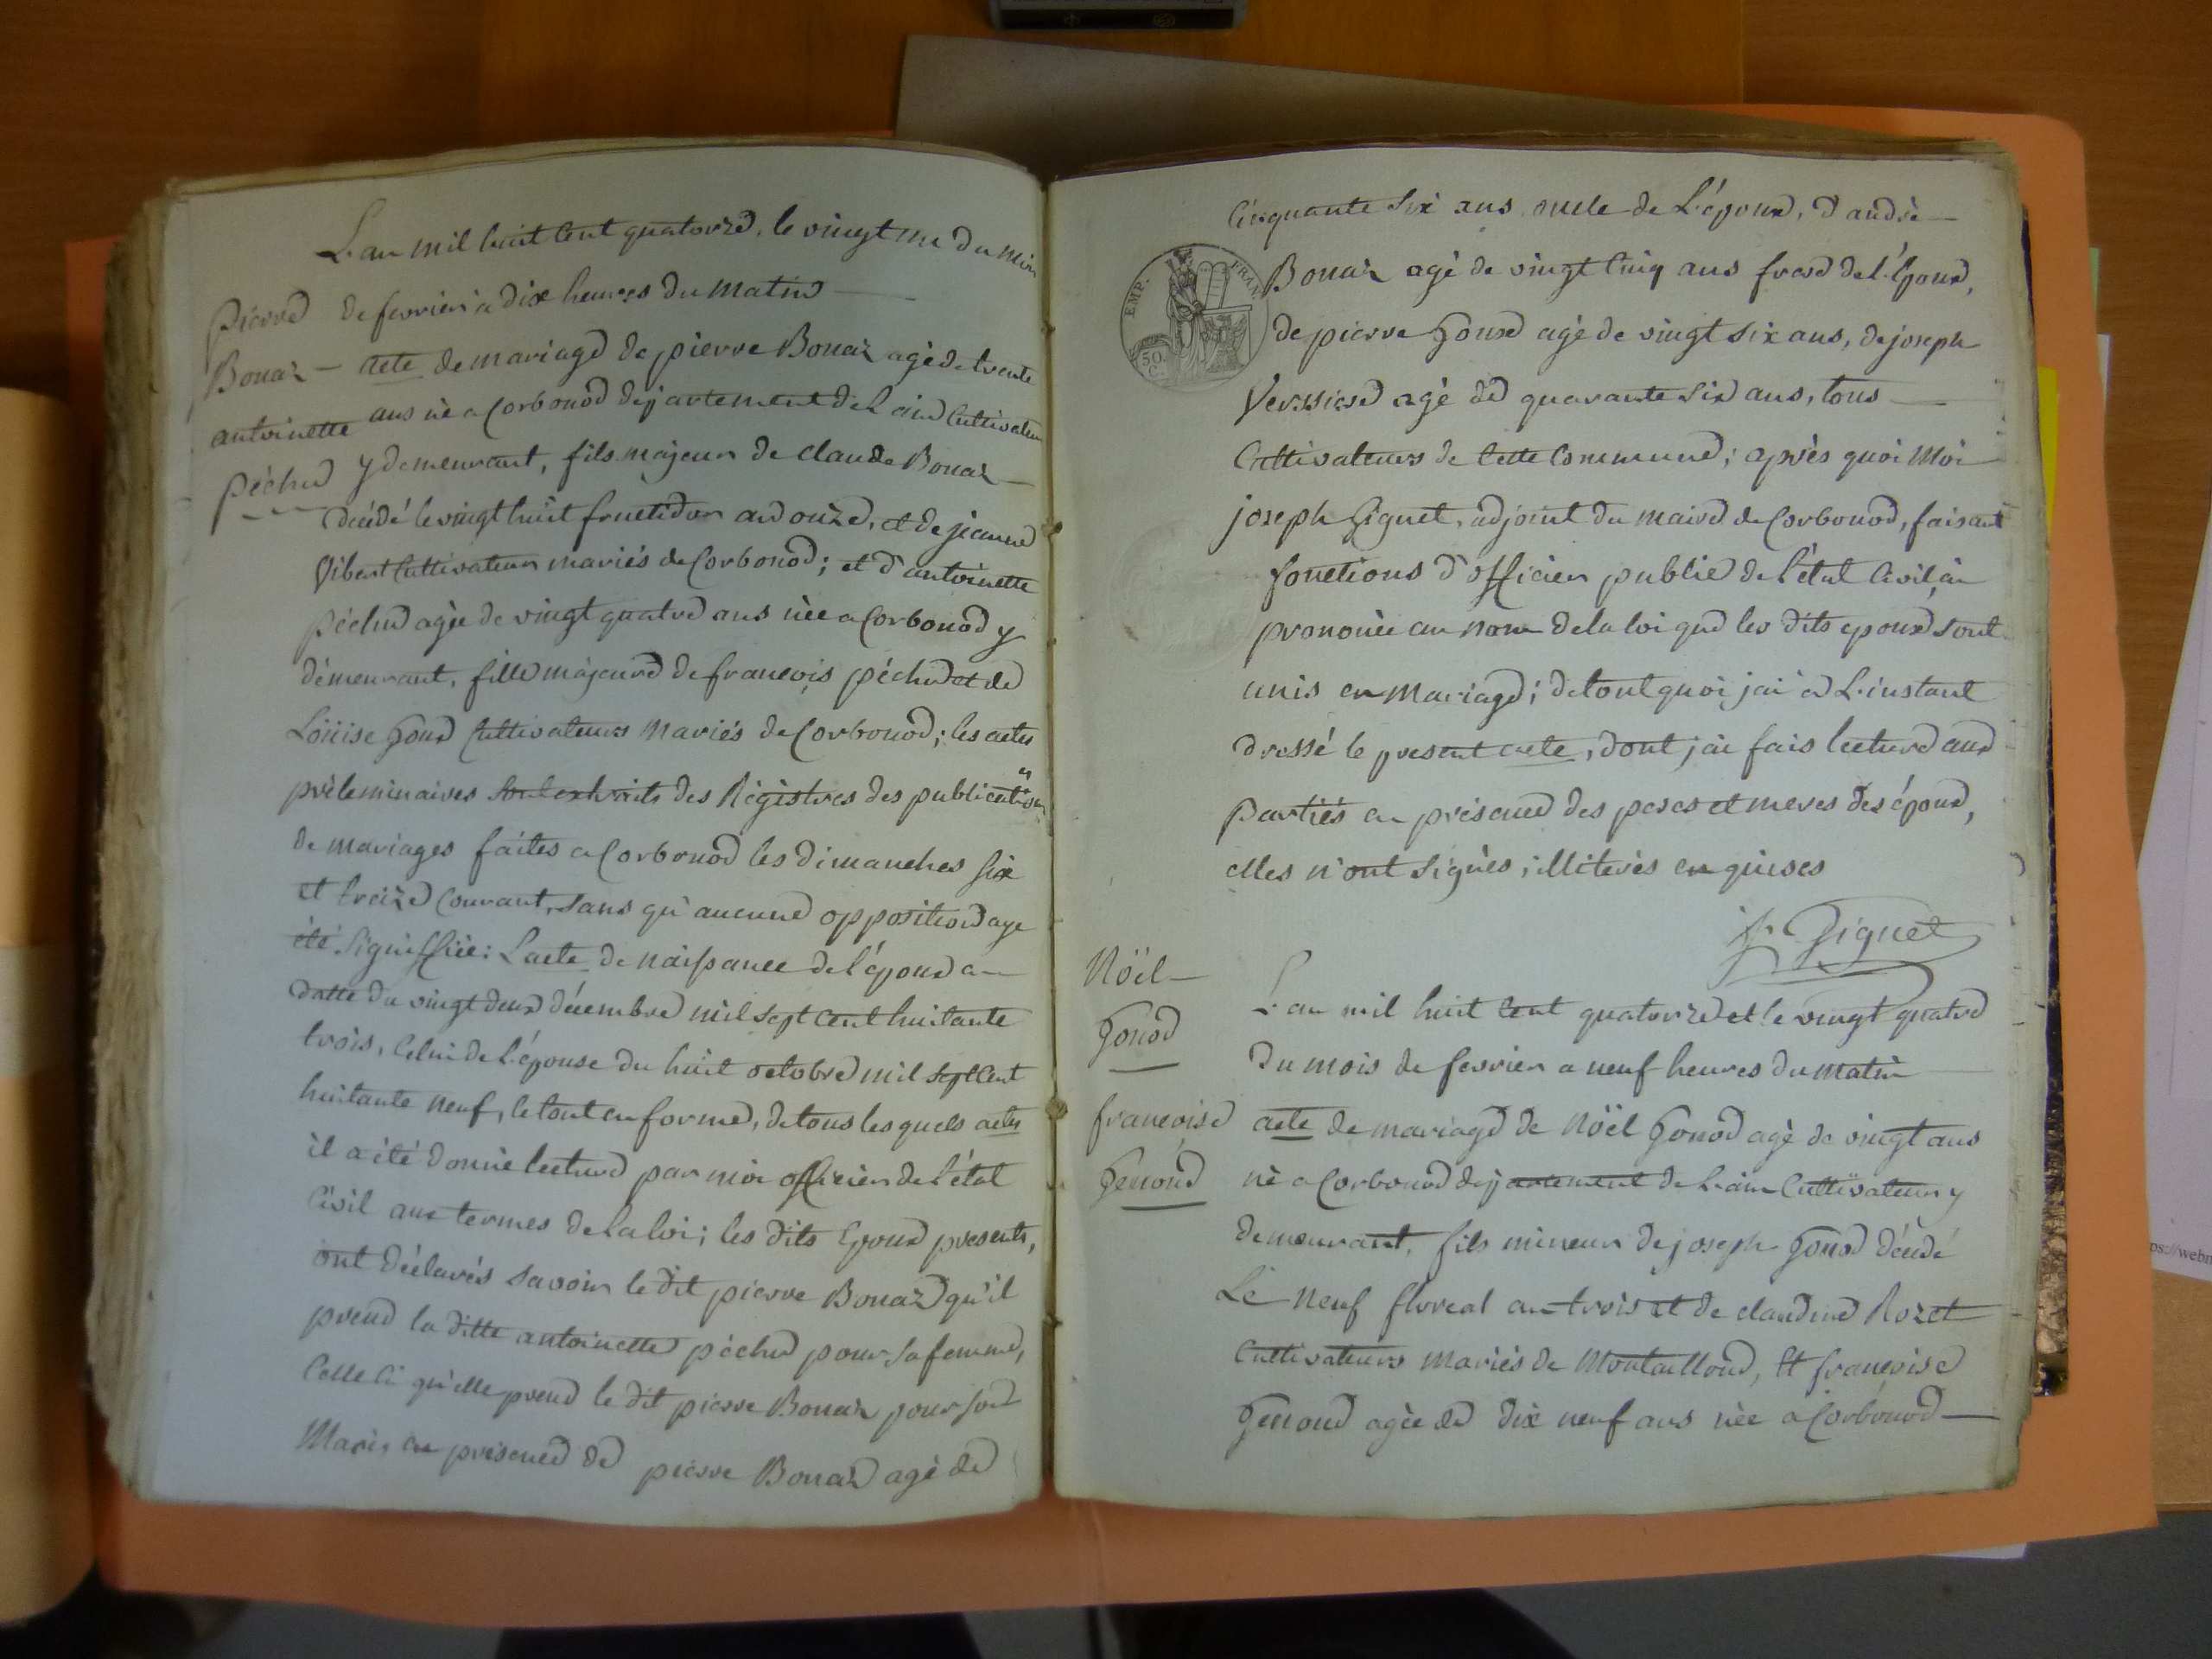 L'an mil huit cent quatorze, le vingt un du mois
Pierre de fevrier à dix heures du matin
Bonaz – acte de mariage de pierre Bonaz agé de trente
antoinette ans né a Corbonod departement de L'ain Cultivateur
péchu y demeurant, fils majeur de claude Bonaz
décédé le vingt huit fructidor an onze, et de jeanne
Vibert Cultivateurs mariés de Corbonod; et d'antoinette
péchu agée de vingt quatre ans née a Corbonod y
démeurant, fille majeure de francois péchu et de
Löüise Goux Cultivateurs Mariés de Corbonod; les actes
préleminaires sont extraits des Régistres des publications
de mariages faites a Corbonod les dimanches Six
et treize Courant, sans qu'aucune opposition aye
été Signiffiée: L'acte de naissance de l'époux a
datte du vingt deux décembre mil sept cent huitante
trois, Celui de L'épouse du huit octobre mil sept cent
huitante neuf, le tout en forme, de tous les quels actes
il a été donné lecture par moi officier de l'état
Civil aux termes de la loi; les dits Epoux presents,
ont déclarés savoir le dit pierre Bonaz qu'il
prend la ditte antoinette péchu pour sa femme,
Celle Ci qu'elle prend le dit pierre Bonaz pour son
Mari, en présence de pierre Bonaz agé de
Cinquante Six ans oncle de L'époux, d'andré
EMP. FRAN.
50. C.
Bonaz agé de vingt Cinq ans frere de l'Epoux,
de pierre Goux agé de vingt six ans, de joseph
Verssier agé de quarante Six ans, tous
Cultivateurs de Cette Commune; après quoi Moi
joseph Gignet, adjoint du maire de Corbonod, faisant
fonctions d'officier public de l'état Civil, ai
prononcé au nom de la loi que les dits epoux sont
unis en Mariage; de tout quoi jai a L'instant
dressé le present acte, dont jai fais lecture aux
Partiés en présence des peres et meres des époux,
elles n'ont signés, illiterés enquises
j. Gignet
Nöel
Gonod
L'an mil huit cent quatorze et le vingt quatre
du mois de fevrier a neuf heures du matin
francoise acte de mariage de Nöel Gonod agé de vingt ans
Genoud né a Corbonod departement de L'ain Cultivateur y
demeurant, fils mineur de joseph Gonod décédé
Le Neuf floreal an trois et de claudine Rozet
Cultivateurs mariés de Montailloud, Et francoise
Genoud agée de dix neuf ans née a Corbonod